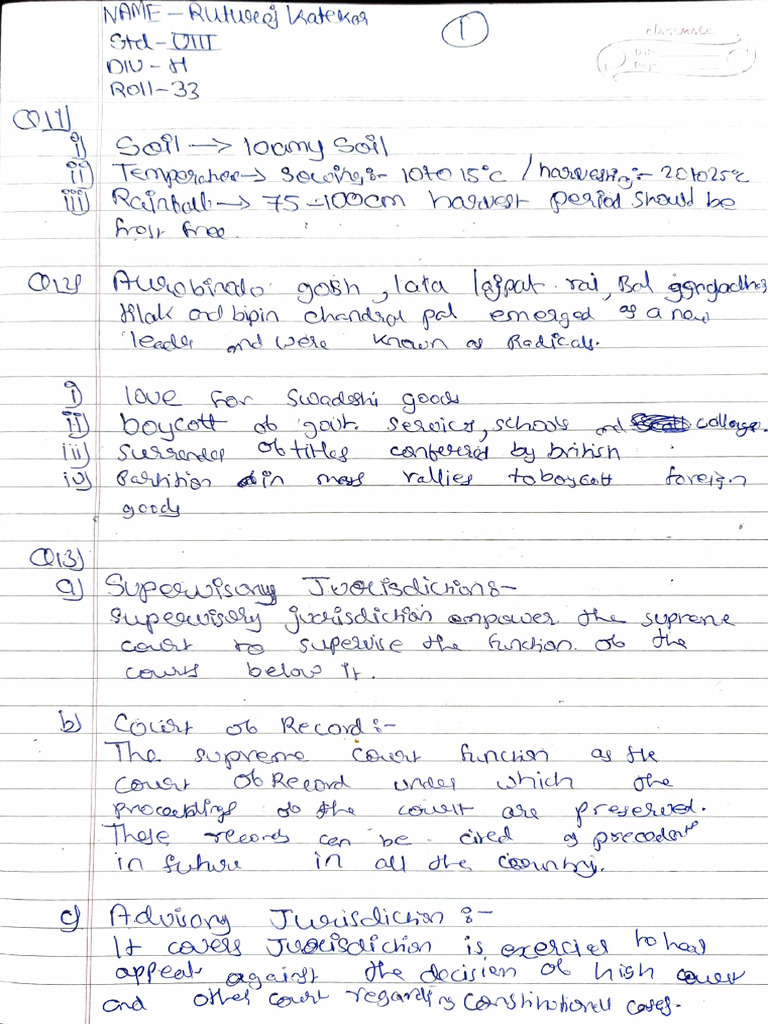 NAME - Ruturaj Katekar
1
classmate
Std - VIII
Date
Page
DIV - H
Roll - 33
Q11)
i) Soil → loamy Soil
ii) Temperature → sowing :- 10 to 15°C / harvesting :- 20 to 25°C
iii) Rainfall → 75 - 100cm harvest period should be
frost free.
Q12) Aurobindo gosh, lala lajpat rai, Bal gangadhar
tilak and bipin chandra pal emerged as a new
leader and were known as Radicals.
i) love for swadeshi goods
ii) boycott of govt. services, schools and college.
iii) surrender of titles conferred by british
iv) Partition in mass rallies to boycott foreign
goods
Q13)
a) Supervisory Jurisdiction :-
supervisory jurisdiction empower the supreme
court to supervise the function of the
courts below it.
b) Court of Record :-
The supreme court function as the
court of Record under which the
proceedings of the court are preserved.
These records can be cited as precedents
in future in all the country.
c) Advisory Jurisdiction :-
It covers Jurisdiction is exercies to hear
appeal against the decision of high court
and other court regarding constitutional cases.